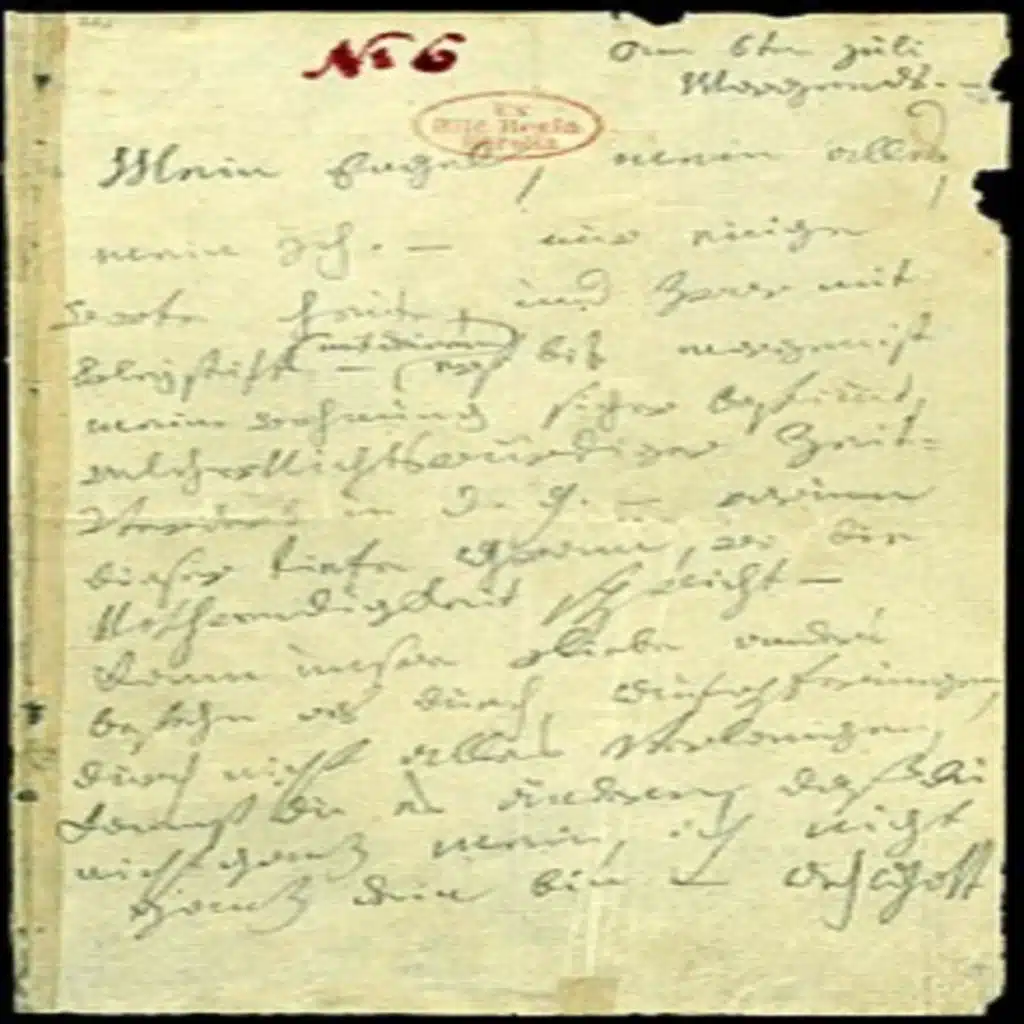 № 6
am 6ten Juli
Morgends. —
Ex
Bibl. Regia
Berolin.
Mein Engel, mein alles,
mein Ich. — nur einige
Worte heute, und zwar mit
Bleystift (mit deinem) — erst bis morgen ist
meine Wohnung sicher bestimt,
welcher Nichtswürdiger Zeit-
verderb in d. g. — warum
dieser tiefe Gram, wo die
Nothwendigkeit spricht —
Kann unsre Liebe anders
bestehn als durch Aufopferungen,
durch nicht alles verlangen,
kannst du es ändern, daß du
nicht ganz mein, ich nicht
ganz dein bin — Ach Gott